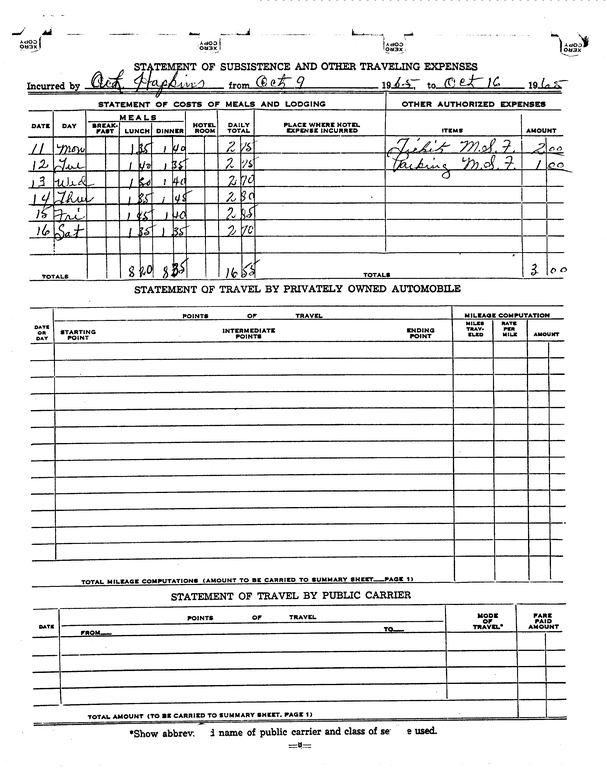 XERO COPY XERO COPY XERO COPY XERO COPY
STATEMENT OF SUBSISTENCE AND OTHER TRAVELING EXPENSES
Incurred by Art Hopkins from Oct 9 1965, to Oct 16 1965
STATEMENT OF COSTS OF MEALS AND LODGING OTHER AUTHORIZED EXPENSES
MEALS
DATE DAY BREAK-FAST LUNCH DINNER HOTEL ROOM DAILY TOTAL PLACE WHERE HOTEL EXPENSE INCURRED ITEMS AMOUNT
11 Mon 1 35 1 40 2 75 Tickit M.S.F. 2 00
12 Tue 1 40 1 35 2 75 Parking M.S.F. 1 00
13 Wed 1 30 1 40 2 70
14 Thur 1 35 1 45 2 80
15 Fri 1 45 1 40 2 85
16 Sat 1 35 1 35 2 70
TOTALS 8 20 8 35 16 55 TOTALS 3 00
STATEMENT OF TRAVEL BY PRIVATELY OWNED AUTOMOBILE
POINTS OF TRAVEL MILEAGE COMPUTATION
DATE OR DAY STARTING POINT INTERMEDIATE POINTS ENDING POINT MILES TRAV-ELED RATE PER MILE AMOUNT
TOTAL MILEAGE COMPUTATIONS (AMOUNT TO BE CARRIED TO SUMMARY SHEET—PAGE 1)
STATEMENT OF TRAVEL BY PUBLIC CARRIER
DATE POINTS OF TRAVEL MODE OF TRAVEL* FARE PAID AMOUNT
FROM— TO—
TOTAL AMOUNT (TO BE CARRIED TO SUMMARY SHEET, PAGE 1)
*Show abbrev. name of public carrier and class of se e used.